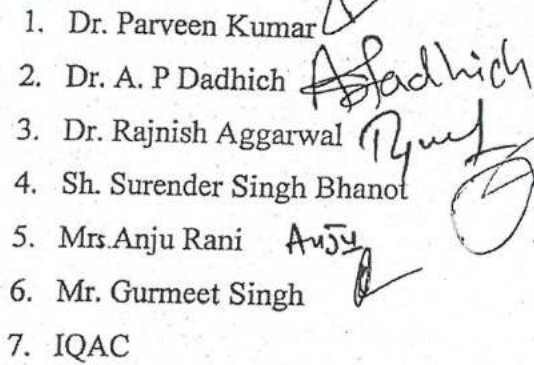 1. Dr. Parveen Kumar
2. Dr. A. P Dadhich Dadhich
3. Dr. Rajnish Aggarwal
4. Sh. Surender Singh Bhanot
5. Mrs.Anju Rani Anju
6. Mr. Gurmeet Singh
7. IQAC